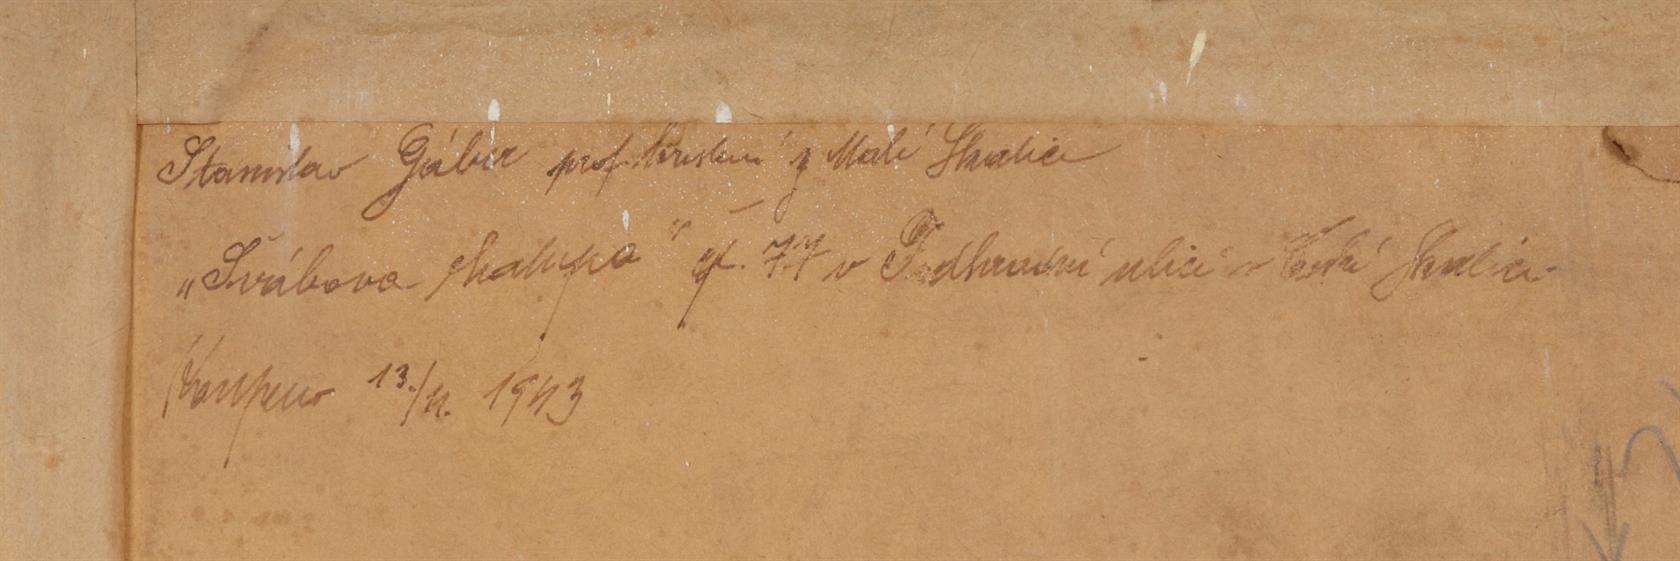 Stanislav Gáber prof. kreslení z Malé Skalice
„Švábova chalupa“ čp. 77 v Podhradní ulici v České Skalici
Koupeno 13./11. 1943